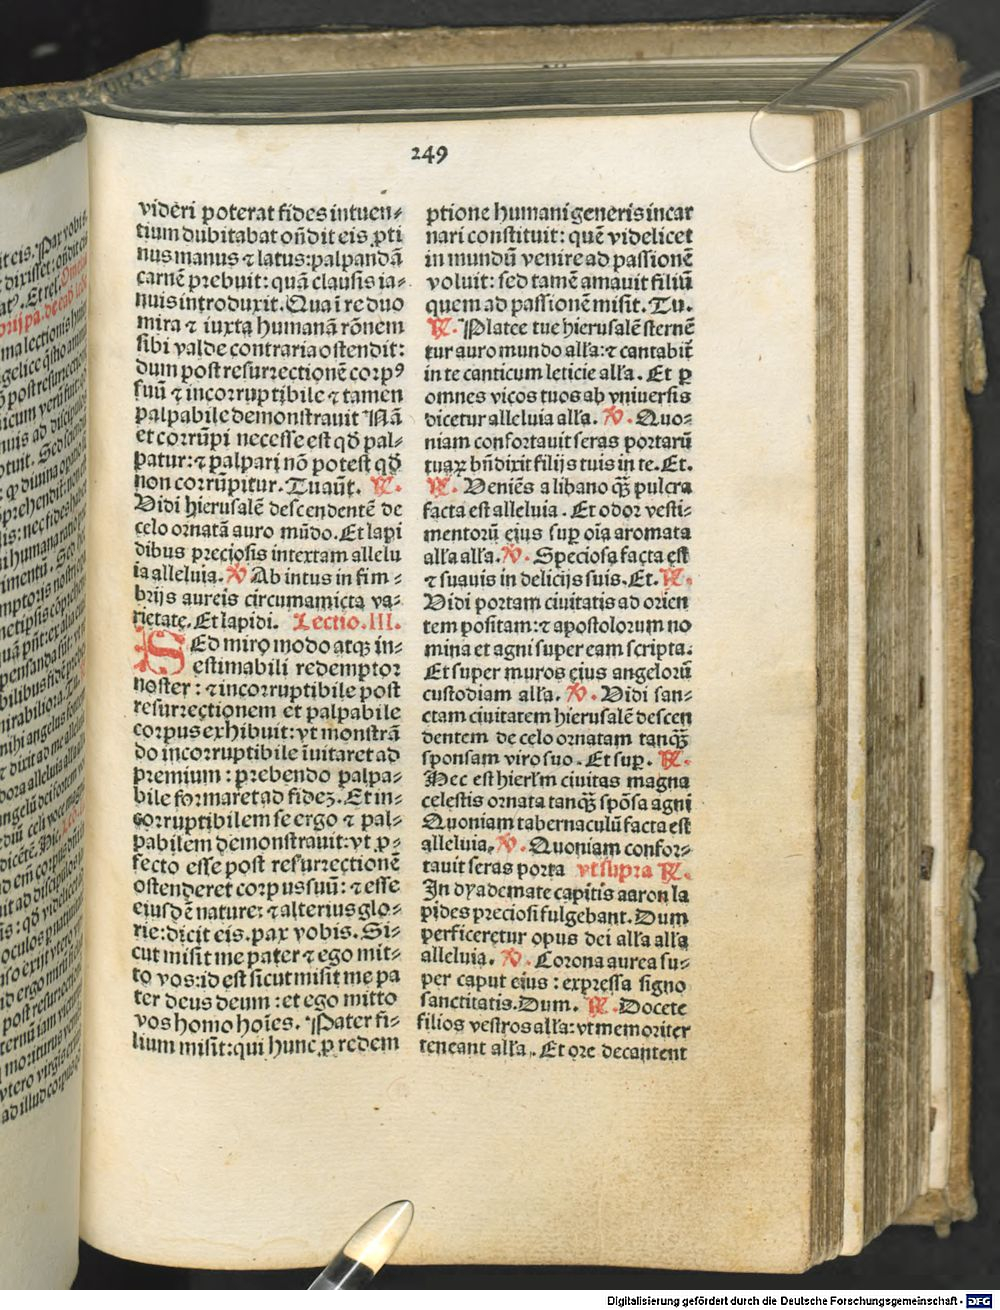 249
videri poterat fides intuen⸗
tium dubitabat oñdit eis ꝓti
nus manus ⁊ latus: palpandã
carnẽ prebuit: quã clausis ia⸗
nuis introduxit. Qua ĩ re duo
mira ⁊ iuxta humanã rõnem
sibi valde contraria ostendit:
dum post resurrectionẽ corpꝰ
suũ ⁊ incorruptibile ⁊ tamen
palpabile demonstrauit Nã
et corrũpi necesse est qď pal⸗
patur: ⁊ palpari nõ potest qď
non corrũpitur. Tu aũt. ℟.
Vidi hierusalẽ descendentẽ de
celo ornatã auro mũdo. Et lapi
dibus preciosis intextam allelu
ia alleluia. ℣ Ab intus in fim⸗
brijs aureis circumamicta va⸗
rietate. Et lapidi. Lectio. III.
SEd miro modo atqꝫ in⸗
estimabili redemptor
noster: ⁊ incorruptibile post
resurrectionem et palpabile
corpus exhibuit: vt monstrã
do incorruptibile ĩuitaret ad
premium: prebendo palpa⸗
bile formaret ad fidez. Et in⸗
corruptibilem se ergo ⁊ pal⸗
pabilem demonstrauit: vt ꝑ⸗
fecto esse post resurrectionẽ
ostenderet corpus suũ: ⁊ esse
eiusdẽ nature: ⁊ alterius glo⸗
rie: dicit eis. pax vobis. Si⸗
cut misit me pater ⁊ ego mit⸗
to vos: id est sicut misit me pa
ter deus deum: et ego mitto
vos homo hoĩes. Pater fi⸗
lium misit: qui hunc ꝓ redem
ptione humani generis incar
nari constituit: quẽ videlicet
in mundũ venire ad passionẽ
voluit: sed tamẽ amauit filiũ
quem ad passionẽ misit. Tu.
℟. Platee tue hierusalẽ sternẽ
tur auro mundo alľa: ⁊ cantabiť
in te canticum leticie alľa. Et ꝑ
omnes vicos tuos ab vniuersis
dicetur alleluia alľa. ℣. Quo⸗
niam confortauit seras portarũ
tuaꝝ bñdixit filijs tuis in te. Et.
℟. Veniẽs a libano qꝫ̃ pulcra
facta est alleluia. Et odor vesti⸗
mentorũ eius suꝑ oĩa aromata
alľa alľa. ℣. Speciosa facta est
⁊ suauis in delicijs suis. Et. ℟.
Vidi portam ciuitatis ad orien
tem positam: ⁊ apostolorum no
mina et agni super eam scripta.
Et super muros eius angelorũ
custodiam alľa. ℣. Vidi san⸗
ctam ciuitatem hierusalẽ descen
dentem de celo ornatam tanqꝫ̃
sponsam viro suo. Et suꝑ. ℟.
Hec est hierľm ciuitas magna
celestis ornata tanqꝫ̃ spõsa agni
Quoniam tabernaculũ facta est
alleluia. ℣. Quoniam confor⸗
tauit seras porta vt supra ℟.
In dyademate capitis aaron la
pides preciosi fulgebant. Dum
perficeretur opus dei alľa alľa
alleluia. ℣. Corona aurea su⸗
per caput eius: expressa signo
sanctitatis. Dum. ℟. Docete
filios vestros alľa: vt memoriter
teneant alľa. Et ore decantent
Digitalisierung gefördert durch die Deutsche Forschungsgemeinschaft - DFG